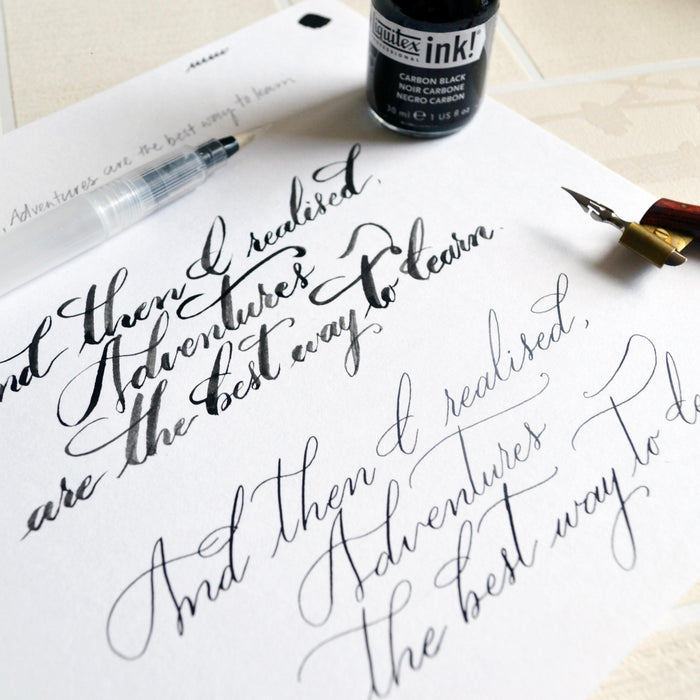 Adventures are the best way to learn
Liquitex ink!
PROFESSIONAL
CARBON BLACK
NOIR CARBONE
NEGRO CARBON
30 ml e 1 US fl oz
nd then I realised,
Adventures
are the best way to learn.
And then I realised,
Adventures
the best way to